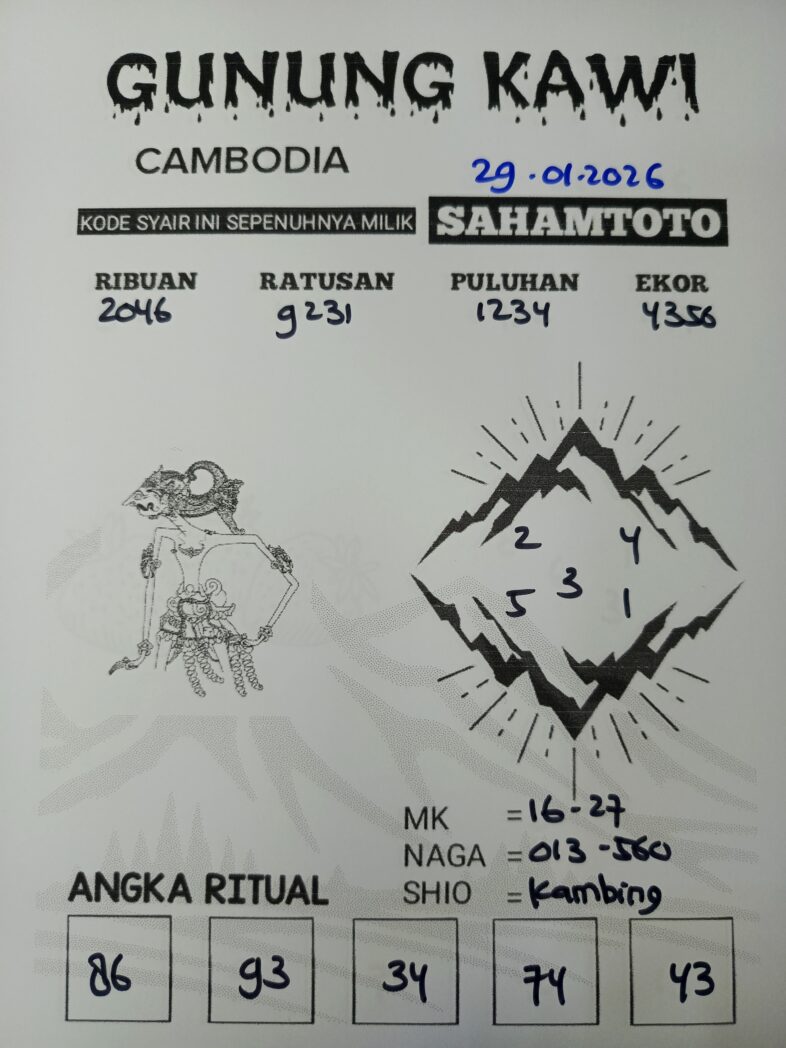 GUNUNG KAWI
CAMBODIA
29.01.2026
KODE SYAIR INI SEPENUHNYA MILIK SAHAMTOTO
RIBUAN RATUSAN PULUHAN EKOR
2046 9231 1234 4356
2 4
3
5 1
MK = 16-27
NAGA = 013-560
SHIO = Kambing
ANGKA RITUAL
86 93 34 74 43